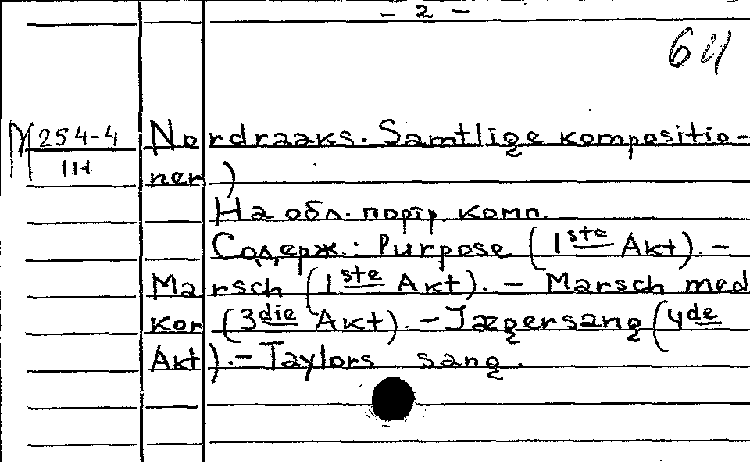 - 2 -
64
М 254-4
III
Nordraaks. Samtlige kompositio-
ner)
На обл. портр. комп.
Содерж.: Purpose (1ste Akt). -
Marsch (1ste Akt). - Marsch med
kor (3die Akt). - Jægersang (4de
Akt). - Taylors sang.